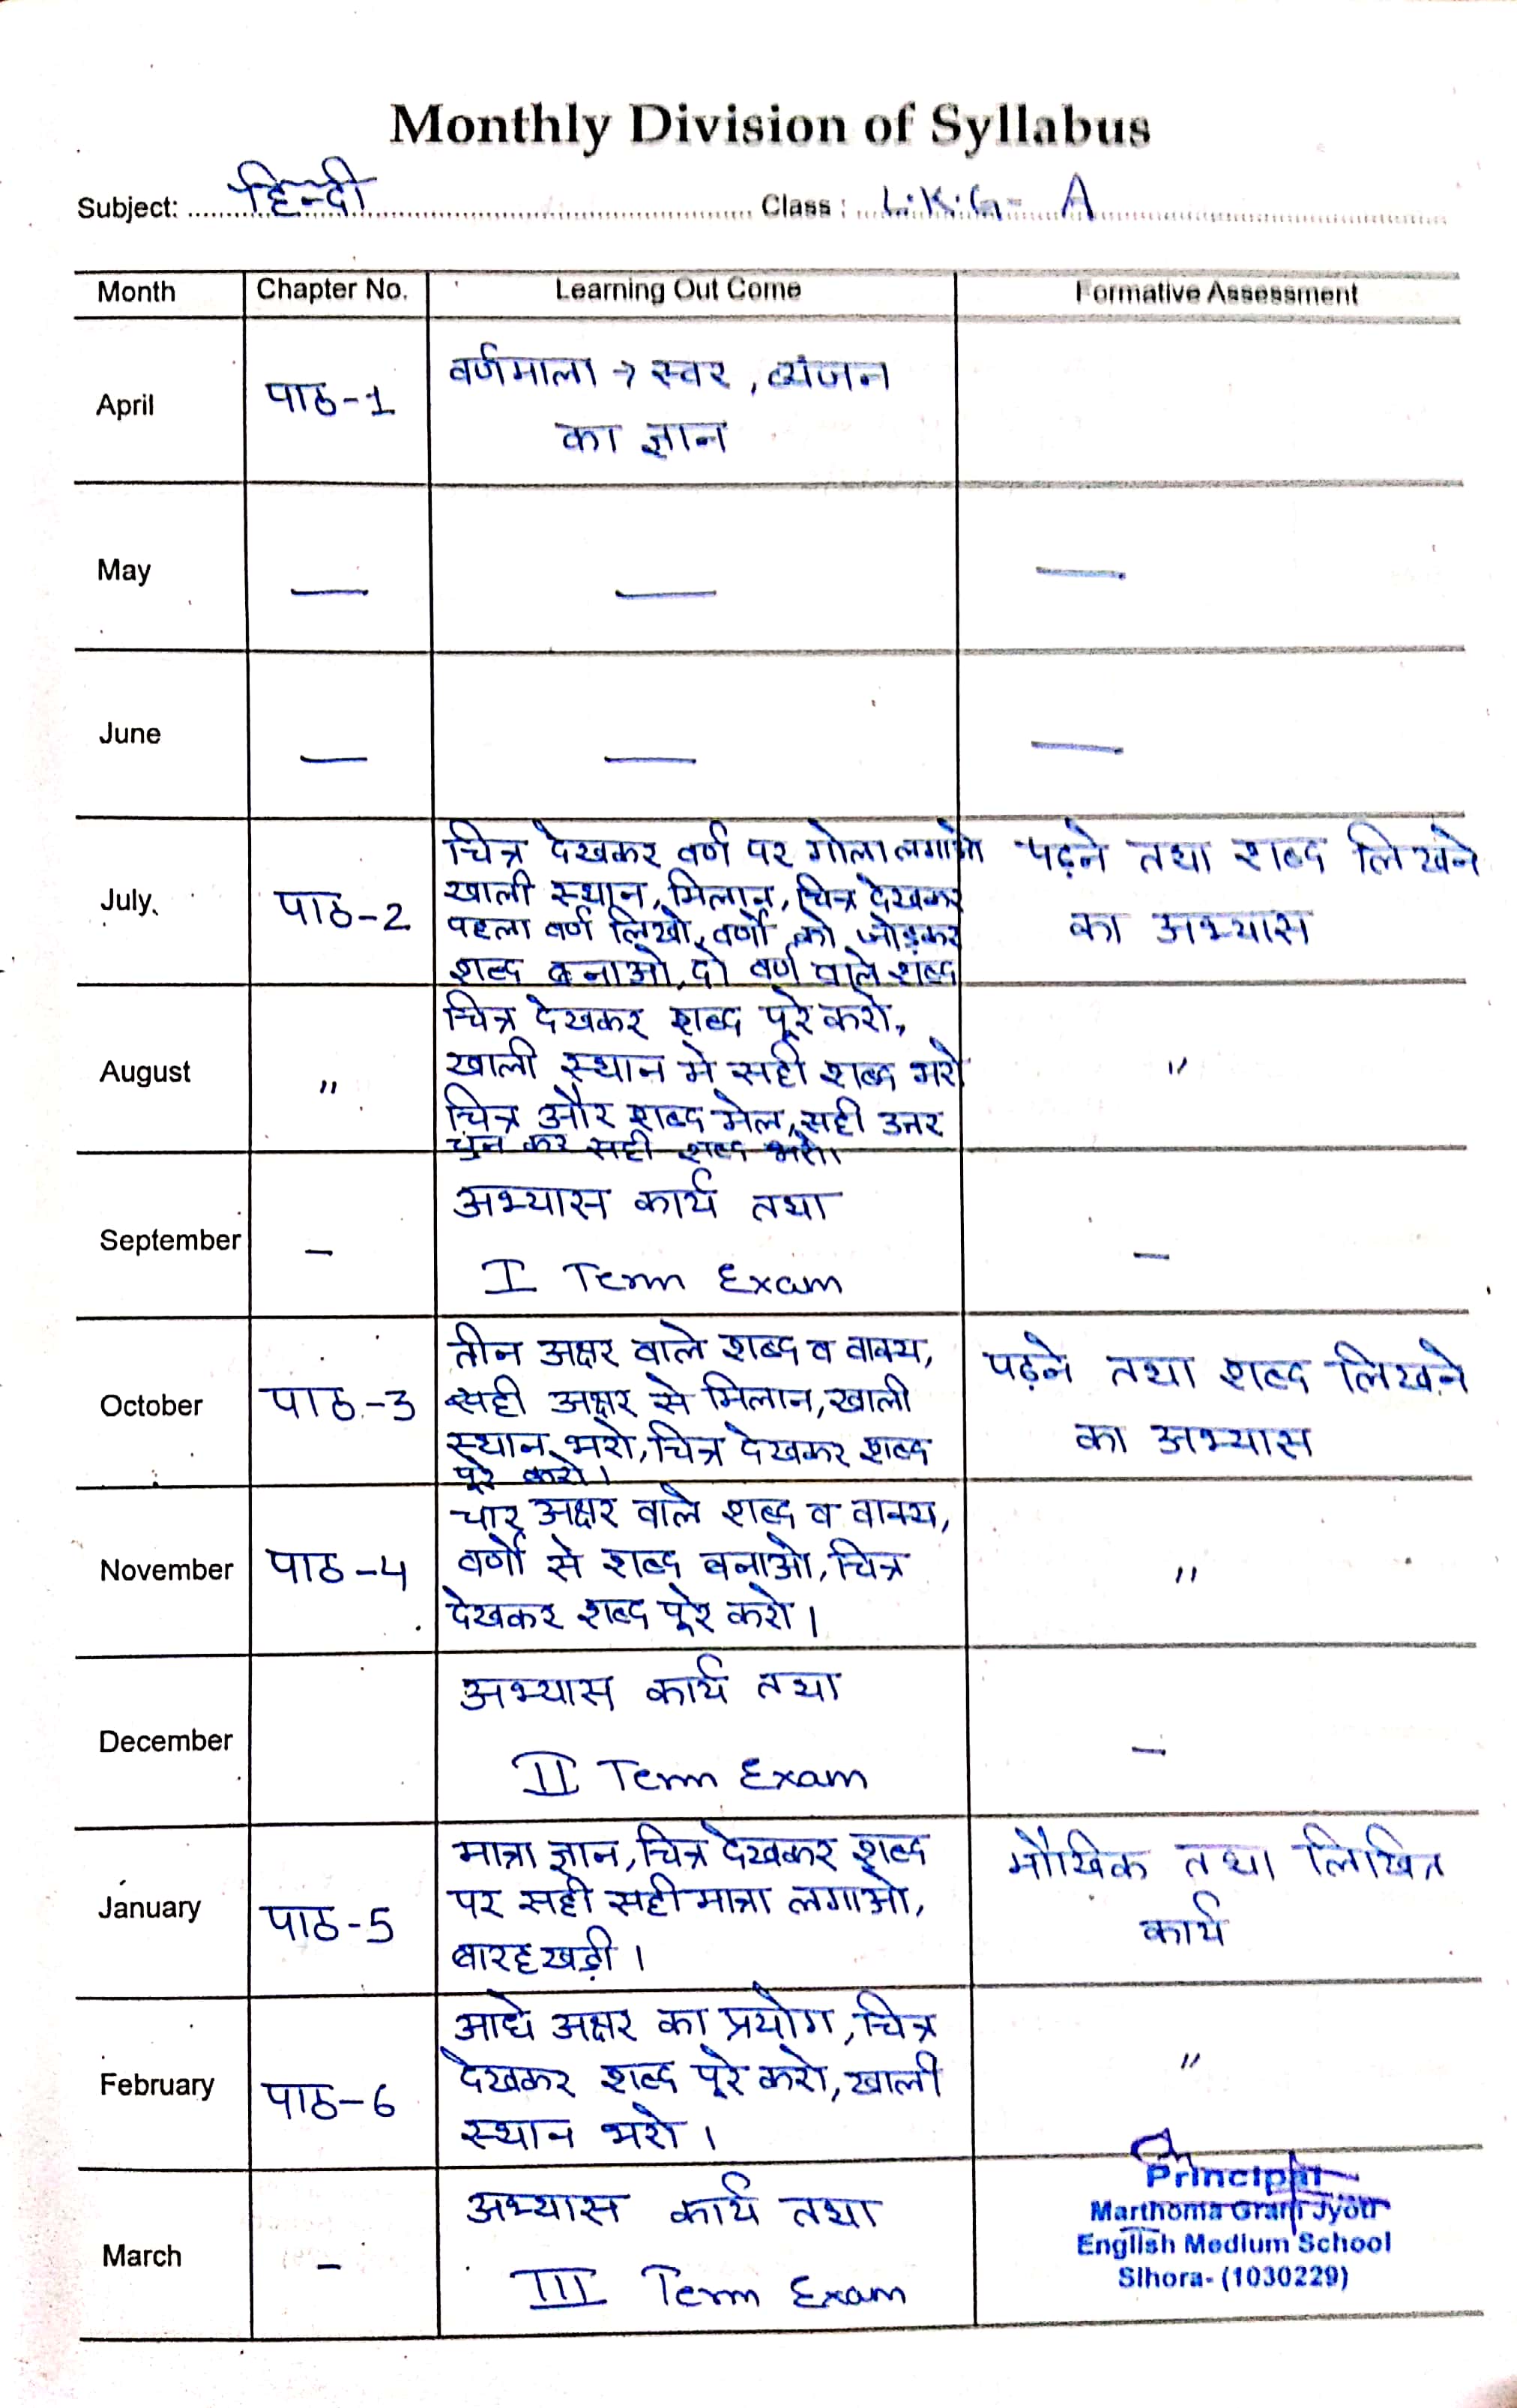 Monthly Division of Syllabus
Subject: हिन्दी Class : L.K.G- A
Month Chapter No. Learning Out Come Formative Assessment
April पाठ-1 वर्णमाला → स्वर, व्यंजन
का ज्ञान
May — — —
June — — —
July पाठ-2 चित्र देखकर वर्ण पर गोला लगाओ
खाली स्थान, मिलान, चित्र देखकर
पहला वर्ण लिखो, वर्णो को जोड़कर
शब्द बनाओ, दो वर्ण वाले शब्द
पढ़ने तथा शब्द लिखने
का अभ्यास
August " चित्र देखकर शब्द पूरे करो,
खाली स्थान मे सही शब्द भरो
चित्र और शब्द मेल, सही उत्तर
चुन कर सही शब्द भरो।
"
September – अभ्यास कार्य तथा
I Term Exam
–
October पाठ-3 तीन अक्षर वाले शब्द व वाक्य,
सही अक्षर से मिलान, खाली
स्थान भरो, चित्र देखकर शब्द
पूरे करो।
पढ़ने तथा शब्द लिखने
का अभ्यास
November पाठ-4 चार अक्षर वाले शब्द व वाक्य,
वर्णो से शब्द बनाओ, चित्र
देखकर शब्द पूरे करो।
"
December अभ्यास कार्य तथा
II Term Exam
–
January पाठ-5 मात्रा ज्ञान, चित्र देखकर शब्द
पर सही सही मात्रा लगाओ,
बारहखड़ी।
मौखिक तथा लिखित
कार्य
February पाठ-6 आधे अक्षर का प्रयोग, चित्र
देखकर शब्द पूरे करो, खाली
स्थान भरो।
"
March – अभ्यास कार्य तथा
III Term Exam
Principal
Marthoma Gram Jyoti
English Medium School
Sihora- (1030229)